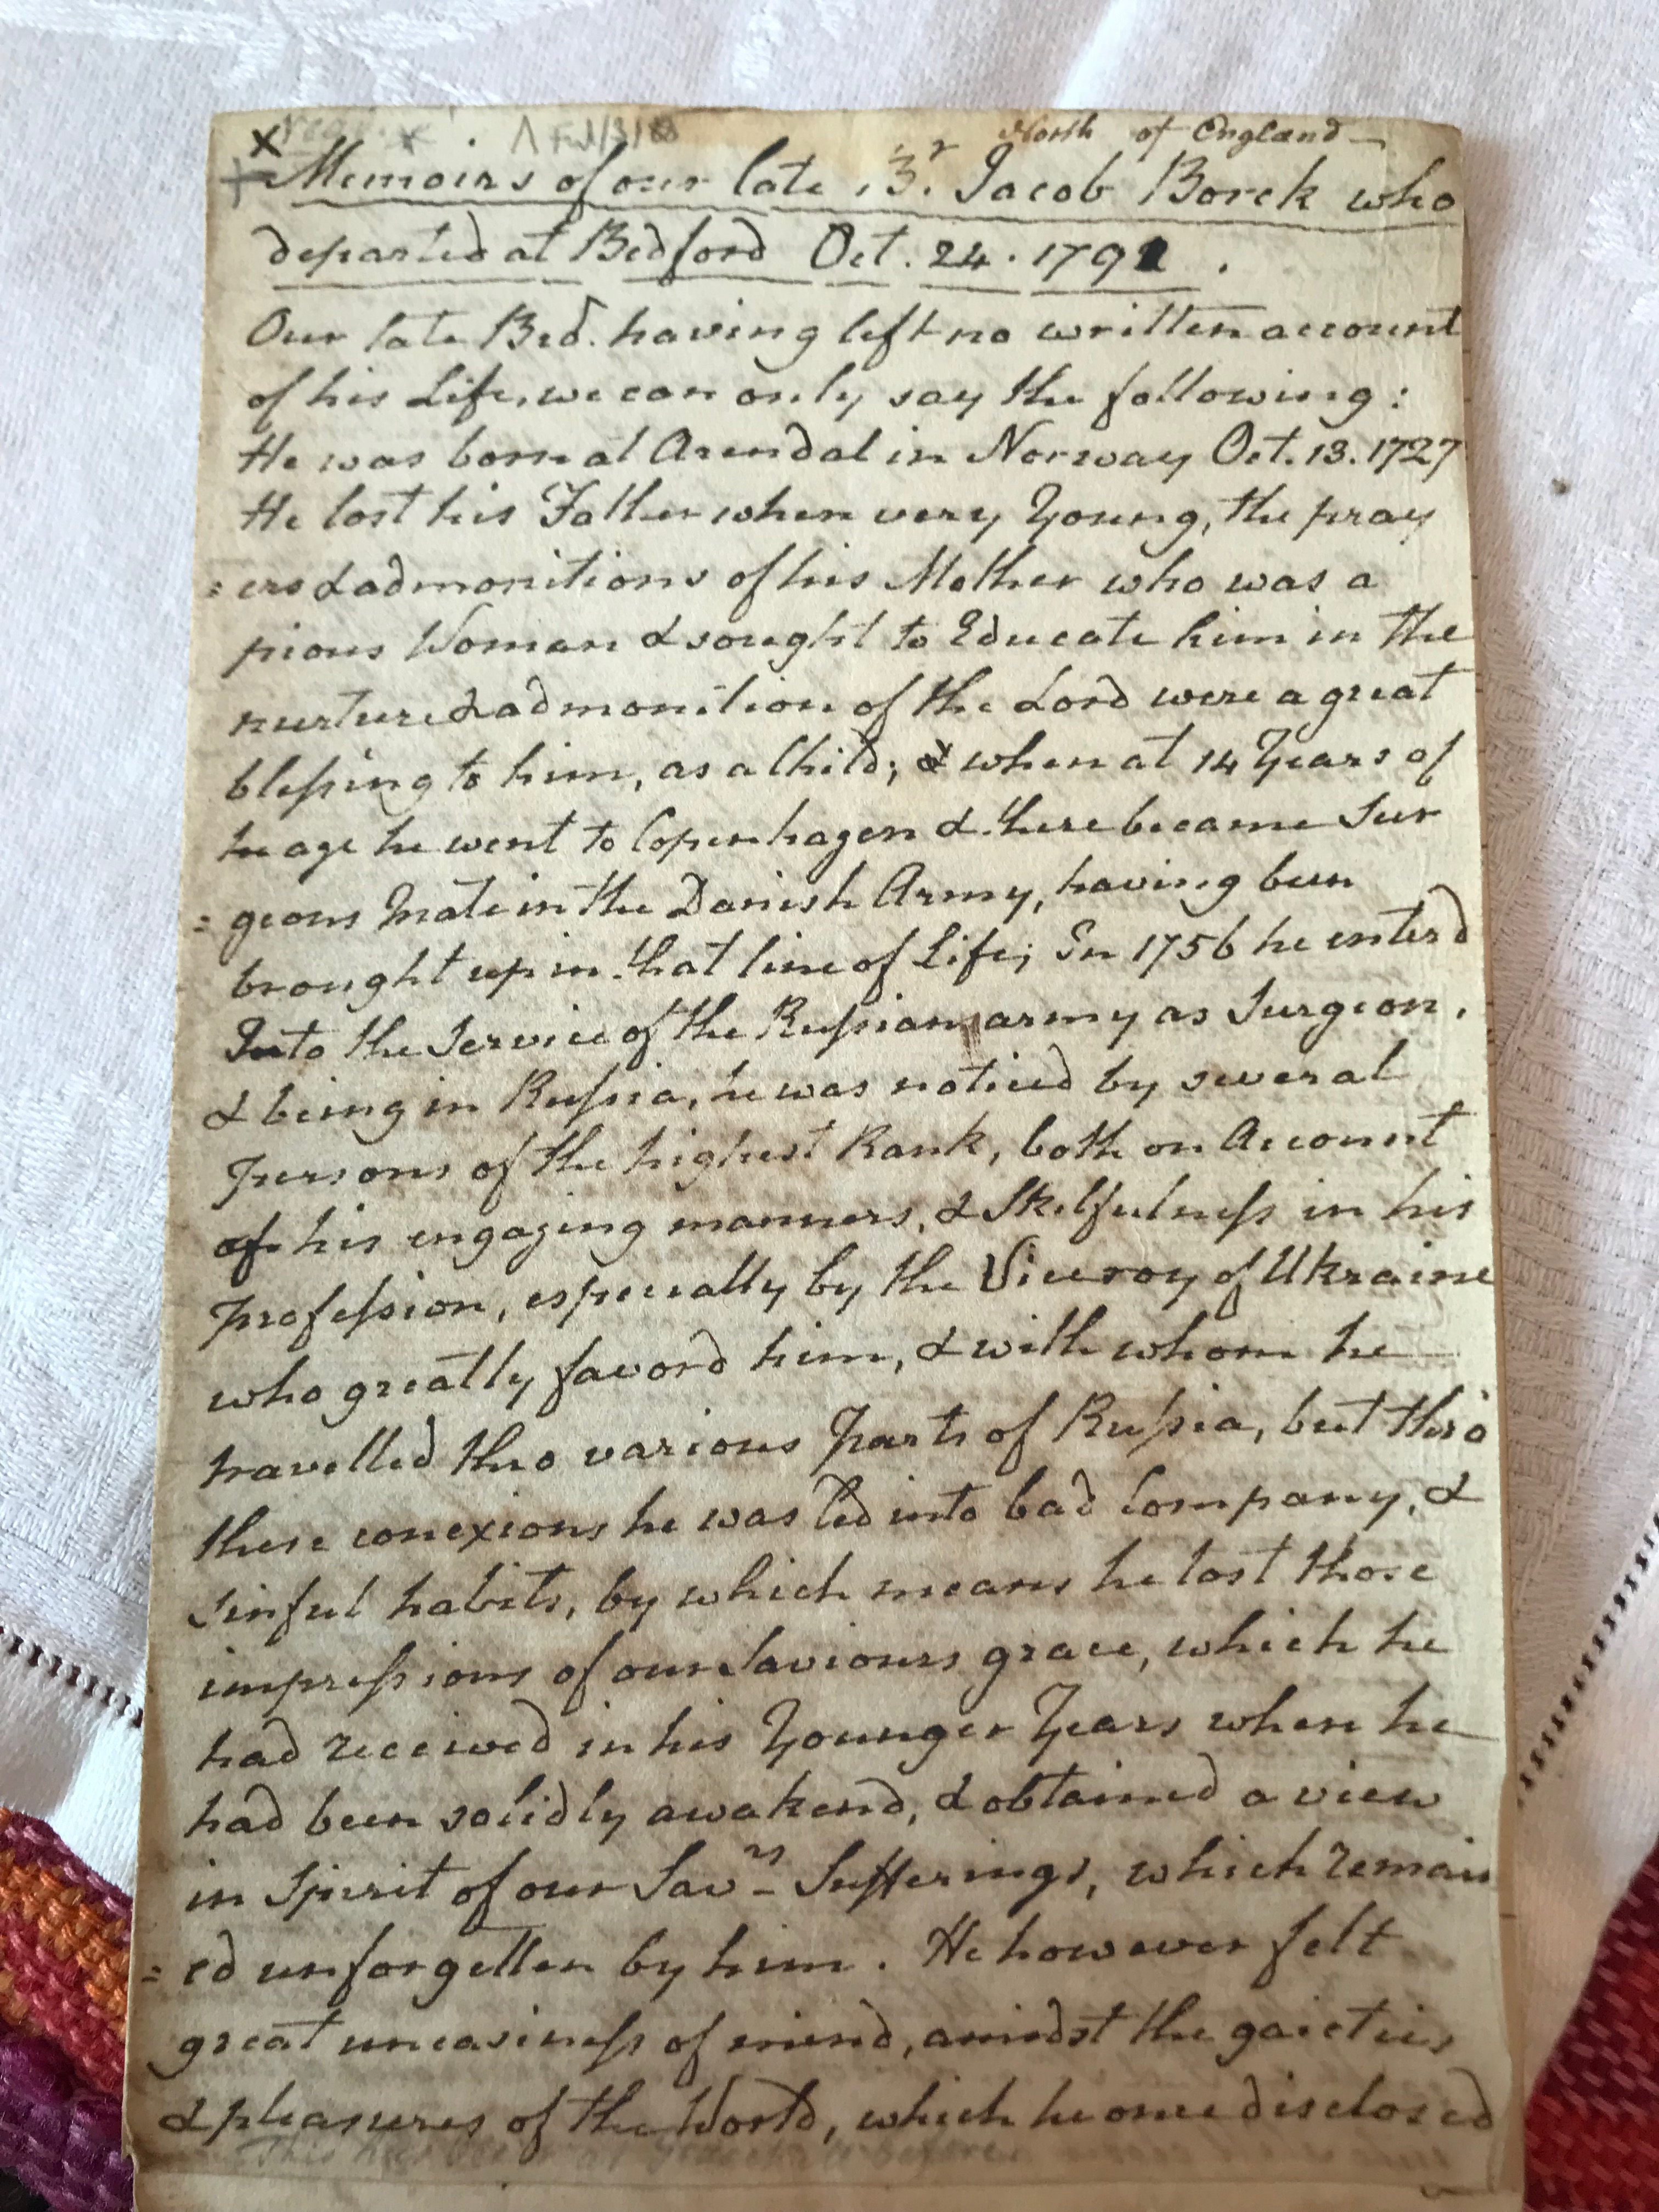 North of England
Memoirs of our late Br. Jacob Borck who
departed at Bedford Oct. 24. 1791.
Our late Bro. having left no written account
of his Life, we can only say the following:
He was born at Arendal in Norway Oct. 13. 1727
He lost his Father when very Young, the pray
=ers & admonitions of his Mother who was a
pious Woman & sought to Educate him in the
nurture & admonition of the Lord were a great
blessing to him, as a Child; & when at 14 Years of
age he went to Copenhagen & there became Sur
=geons Mate in the Danish Army, having been
brought up in that line of Life; In 1756 he enterd
Into the Service of the Russian army as Surgeon.
& being in Russia, he was noticed by several
persons of the highest Rank, both on Account
of his engaging manners, & Skilfulness in his
profession, especially by the Viceroy of Ukraine
who greatly favord him, & with whom he
travelled thro various Parts of Russia, but thro
these conexions he was led into bad Company, &
sinful habits, by which means he lost those
impressions of our Saviours grace, which he
had received in his Younger Years when he
had been solidly awakend, & obtained a view
in Spirit of our Savrs Sufferings, which remain
=ed unforgotten by him. He however felt
great uneasiness of mind, amidst the gaieties
& pleasures of the World, which he once disclosed